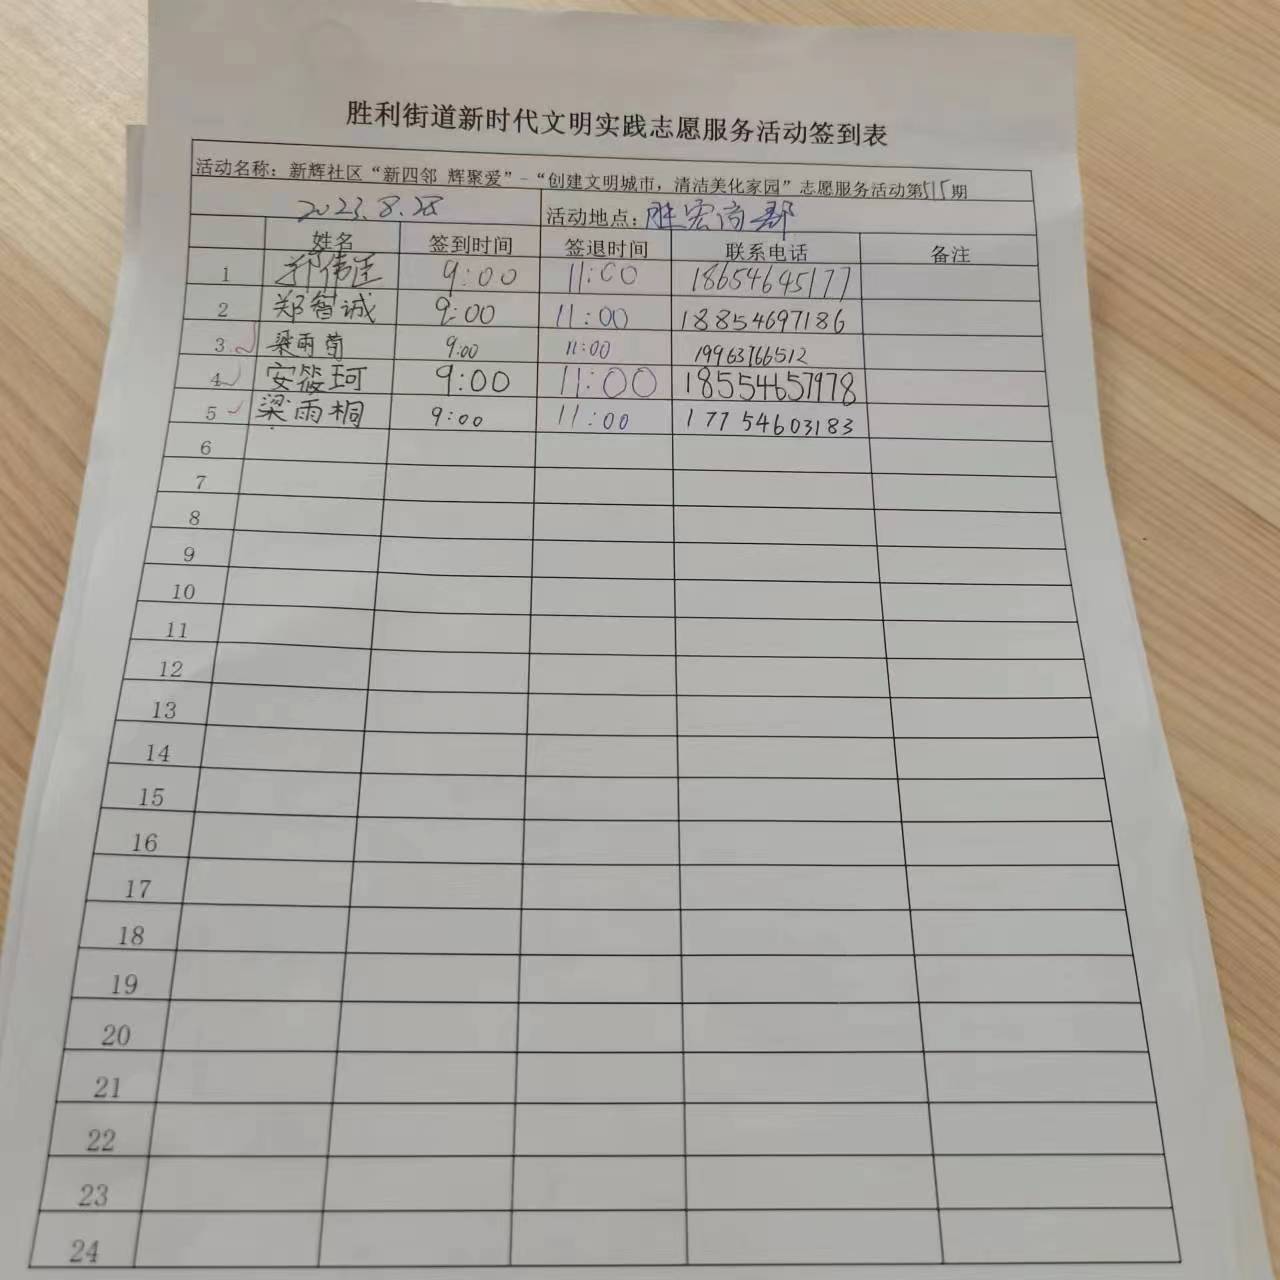 胜利街道新时代文明实践志愿服务活动签到表
活动名称：新辉社区“新四邻 辉聚爱”-“创建文明城市，清洁美化家园”志愿服务活动第515期
2023.8.28 活动地点：胜宏商郡
姓名 签到时间 签退时间 联系电话 备注
1 郑伟 9:00 11:00 18654645177
2 郑智诚 9:00 11:00 18854697186
3 梁雨萄 9:00 11:00 19963766512
4 安筱珂 9:00 11:00 18554657978
5 梁雨桐 9:00 11:00 17754603183
6
7
8
9
10
11
12
13
14
15
16
17
18
19
20
21
22
23
24